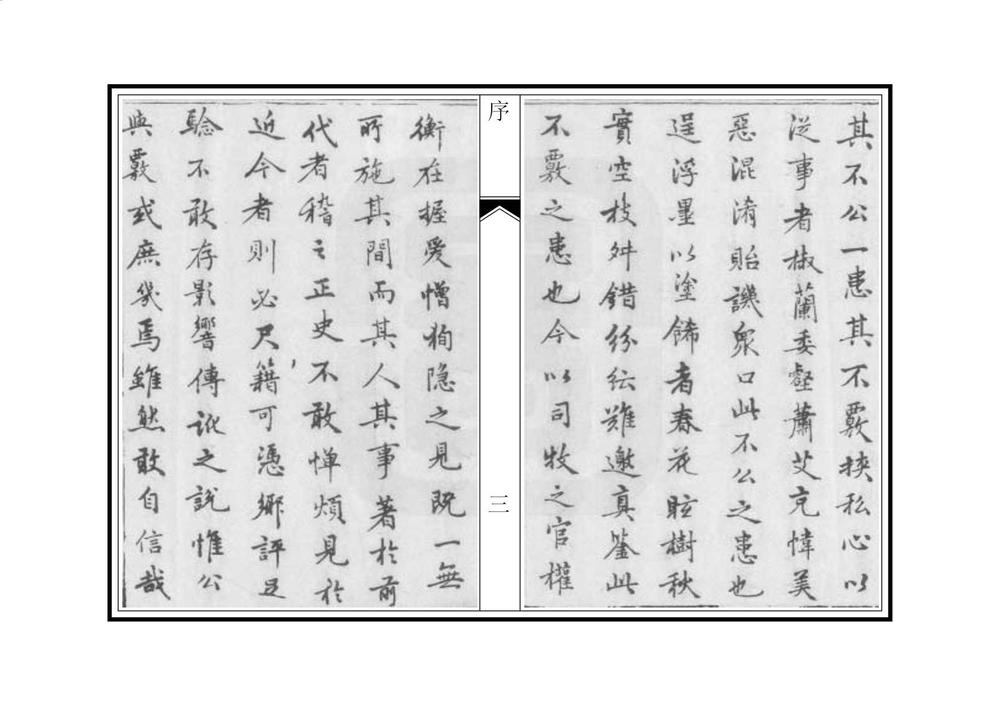 其不公一患其不覈挾私心以
從事者椒蘭委壑蕭艾充幃美
惡混淆貽譏眾口此不公之患也
逞浮墨以塗飾者春花眩樹秋
實空枝舛錯紛紜難邀真鑒此
不覈之患也今以司牧之官權
序
三
衡在握愛憎徇隐之見既一無
所施其間而其人其事著於前
代者稽之正史不敢憚煩見於
近今者則必尺籍可憑鄉評足
驗不敢存影響傳訛之說惟公
與覈或庶幾焉雖然敢自信哉